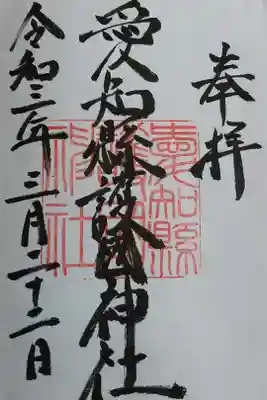 奉拝
愛知縣護國神社
令和三年三月二十二日
愛知縣護國神社